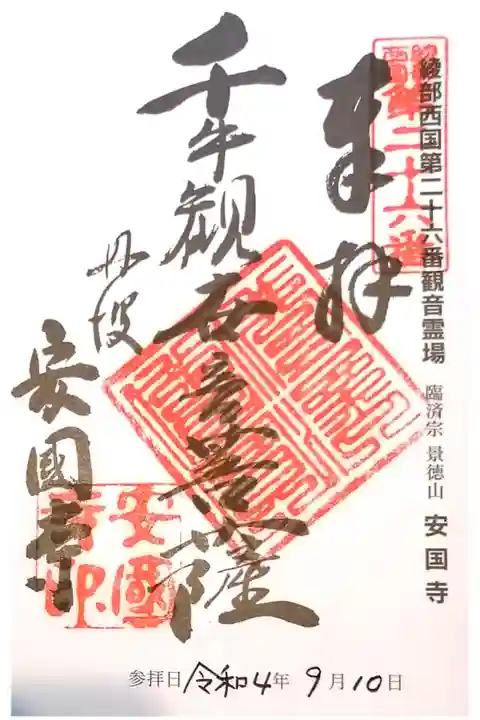 綾部西国第二十六番観音霊場 臨済宗 景徳山 安国寺
奉拝
千手観世音菩薩
丹波
安國寺
安國寺印
参拝日 令和4年 9月10日